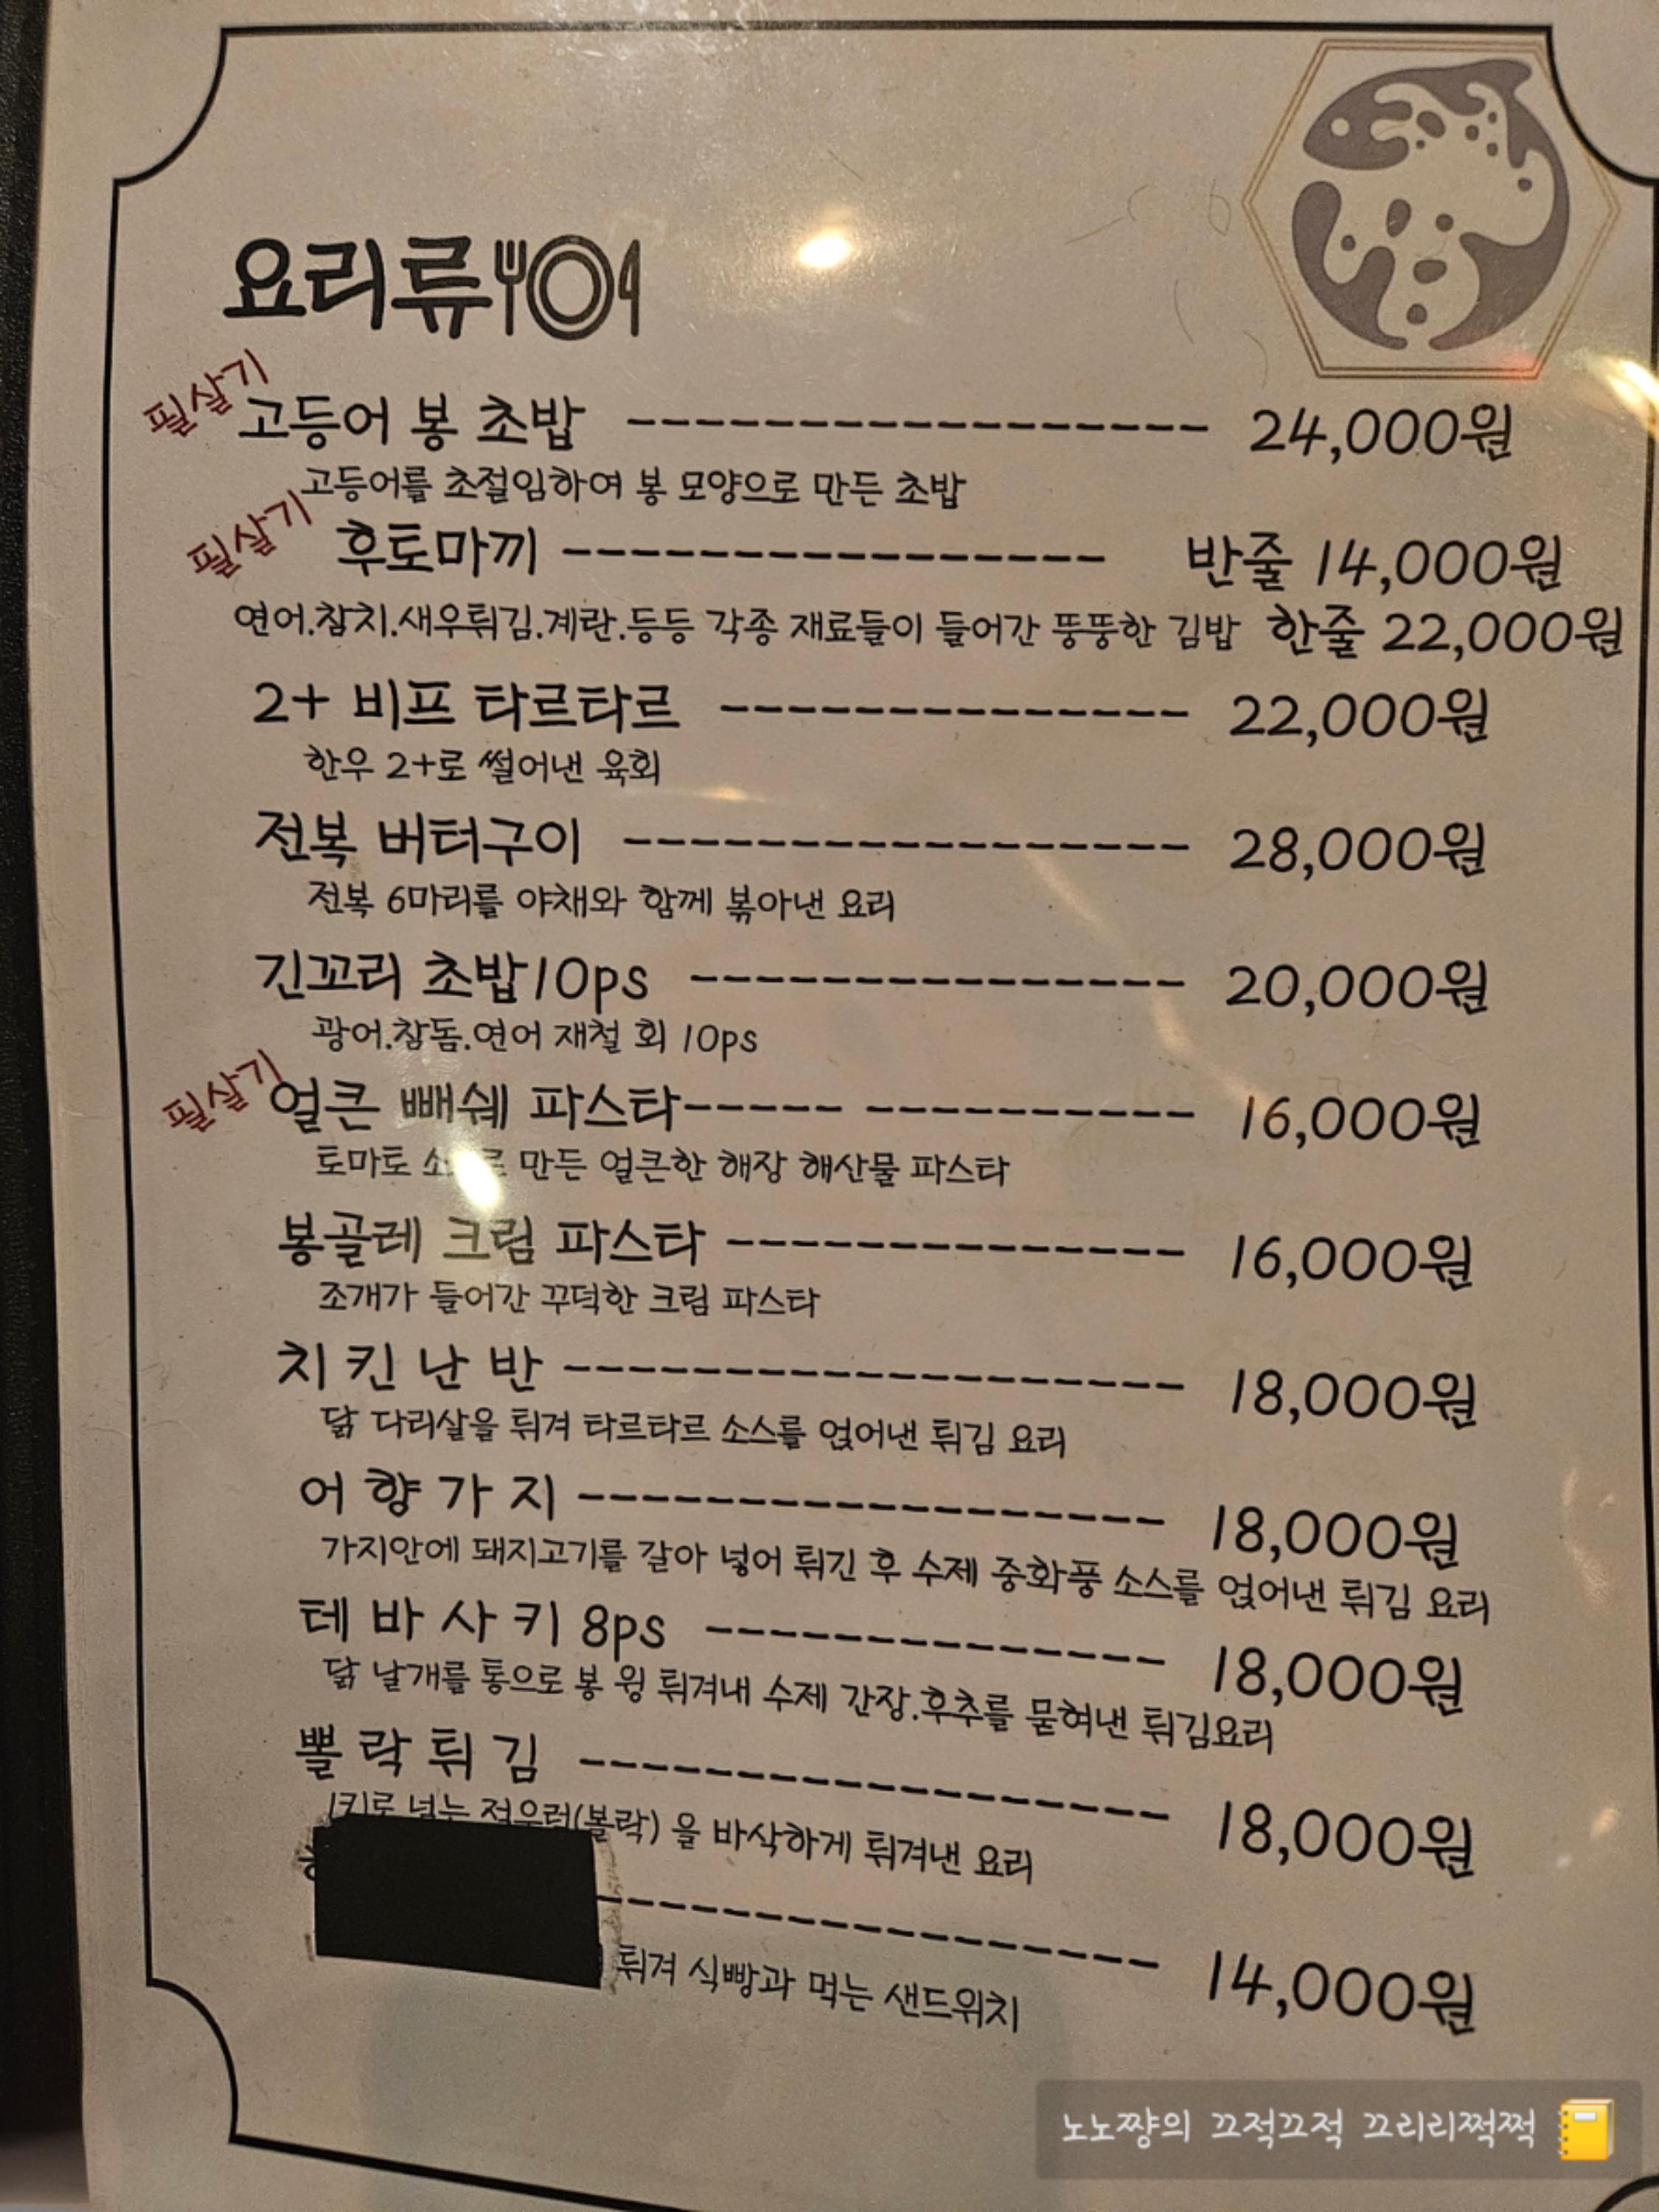 요리류
필살기
고등어 봉 초밥 ------------------ 24,000원
고등어를 초절임하여 봉 모양으로 만든 초밥
필살기
후토마끼 ----------------- 반줄 14,000원
연어.참치.새우튀김.계란.등등 각종 재료들이 들어간 뚱뚱한 김밥 한줄 22,000원
2+ 비프 타르타르 -------------- 22,000원
한우 2+로 썰어낸 육회
전복 버터구이 ----------------- 28,000원
전복 6마리를 야채와 함께 볶아낸 요리
긴꼬리 초밥10ps --------------- 20,000원
광어.참돔.연어 재철 회 10ps
필살기
얼큰 빼쉐 파스타----- ---------- 16,000원
토마토 만든 얼큰한 해장 해산물 파스타
봉골레 크림 파스타 -------------- 16,000원
조개가 들어간 꾸덕한 크림 파스타
치 킨 난 반 ------------------- 18,000원
닭 다리살을 튀겨 타르타르 소스를 얹어낸 튀김 요리
어 향 가 지 ------------------ 18,000원
가지안에 돼지고기를 갈아 넣어 튀긴 후 수제 중화풍 소스를 얹어낸 튀김 요리
테 바 사 키 8ps -------------- 18,000원
닭 날개를 통으로 봉 윙 튀겨내 수제 간장.후추를 묻혀낸 튀김요리
뽈 락 튀 김 ------------------ 18,000원
1키로 넘는 적우럭(볼락) 을 바삭하게 튀겨낸 요리
----------------- 14,000원
튀겨 식빵과 먹는 샌드위치
노노쨩의 끄적끄적 끄리리쩍쩍